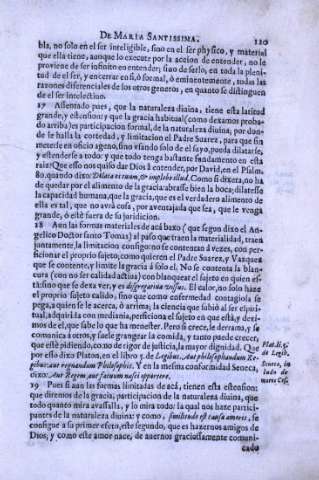 DE MARIA SANTISSIMA. 120
bla, no solo en el ser inteligible, sino en el ser physico, y material
que ella tiene, aunque lo execute por la accion de entender, no le
proviene de ser infinito en entender; sino de serlo, en toda la pleni-
tud de el ser, y encerrar en si, ò formal, ò eminentemente, todas las
razones diferenciales de los otros generos, en quanto se distinguen
de el ser intelection.
17 Assentado pues, que la naturaleza diuina, tiene esta latitud
grande, y estension: y que la gracia habitual (como dexamos proba-
do arriba) es participacion formal, de la naturaleza diuina, por don-
de se halla la cortedad, y limitacion el Padre Suarez, para que sin
meterle en oficio ageno, sino vsando solo de el suyo, pueda dilatarse,
y estenderse a todo: y que todo tenga bastante fundamento en esta
raiz? Que esso nos quiso dar Dios à entender, por David, en el Psalm.
80. quando dixo: Dilata os tuum, & implebo illud. Como si dixera, no ha
de quedar por el alimento de la gracia: abrasse bien la boca; dilatesse
la capacidad humana, que la gracia, que es el verdadero alimento de
ella es tal, que no avrà cosa, por aventajada que sea, que le venga
grande, ò estè fuera de su juridicion.
18 Aun las formas materiales de acà baxo (que segun dixo el An-
gelico Doctor santo Tomas) al paso que traen la materialidad, traen
juntamente, la limitacion consigo: no se contentan à vezes, con per-
ficionar el proprio sujeto; como quieren el Padre Suarez, y Vasquez
que se contente, y limite la gracia à solo el. No se contenta la blan-
cura (con no ser calidad activa) con blanquear el sujeto en quien es-
tà: sino que se dexa ver, y es disgregativa visus. El calor, no solo haze
el proprio sujeto calido, sino que como enfermedad contagiosa se
pega, a quien se le acerca, ò arrima; la ciencia que subiò al ser espiri-
tual, adquirida con mediania, perficiona el sujeto en que està, y deti-
mos de el, que sabe lo que ha menester. Pero si crece, se derrama, y se
comunica à otros, y suele grangear la comida, y tanto puede crecer;
que estè pidiendo, como de rigor de justicia, la mayor dignidad. Que
por esso dixo Platon, en el libro 5. de Legibus. Aut philosophandum Re-
gibus: aut regnandum Philosophis. Y en la mesma conformidad Seneca,
dixo: Aut Regem aut fatuum nasci oportere.
Plat. li. 5.
de Legib.
Seneca, in
ludo de
morte Ces.
19 Pues si aun las formas limitadas de acà, tienen esta estension:
que diremos de la gracia; participacion de la naturaleza diuina, que
todo quanto mira avassalla, y lo mira todo: la qual nos haze partici-
pantes de la naturaleza diuina: y como, similitudo est causa amoris, se
consigue a su primer efeto, este segundo, que es hazernos amigos de
Dios; y como este amor nace, de avernos graciosamente comuni-
cado